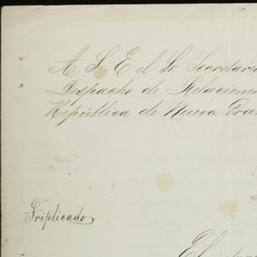 A S. E. el Sr Secretario
Despacho de Relaciones
República de Nueva Gra
Triplicado
El